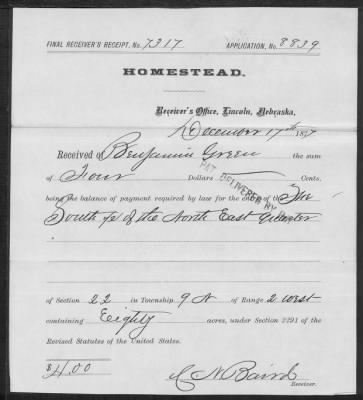 FINAL RECEIVER'S RECEIPT, No. 7317 APPLICATION, No. 8839
HOMESTEAD.
Receiver's Office, Lincoln, Nebraska,
December 17th 187
Received of Benjamin Green the sum
of Four Dollars Cents,
being the balance of payment required by law for the entry of the The
South ½ of the North East Quarter
of Section 22 in Township 9 N of Range 2 West
containing Eighty acres, under Section 2291 of the
Revised Statutes of the United States.
$4.00
C N Baird
Receiver.
PAT. DELIVERED